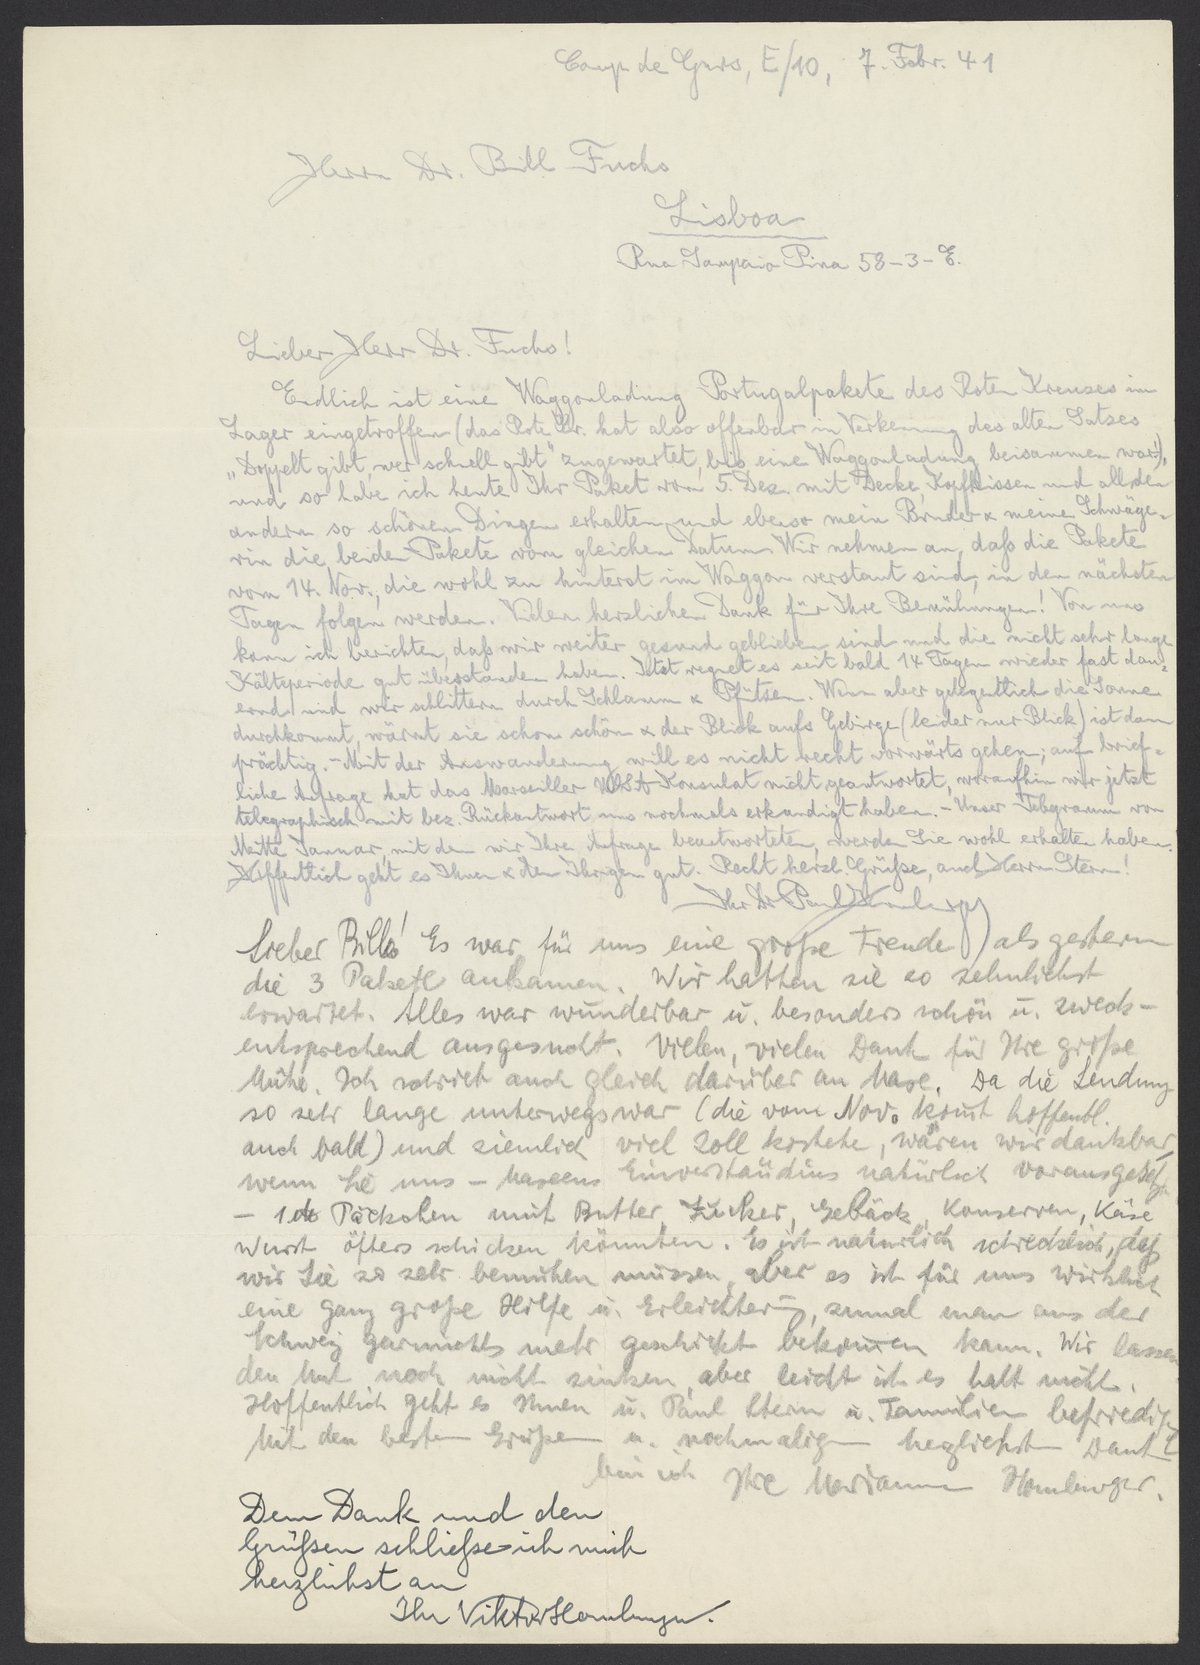 Camp de Gurs, E/10, 7. Febr. 41
Herrn Dr. Bill Fuchs
Lisboa
Rua Sampaio Pina 58-3-E.
Lieber Herr Dr. Fuchs!
Endlich ist eine Waggonladung Portugalpakete des Roten Kreuzes im
Lager eingetroffen (das Rote Kr. hat also offenbar in Verkennung des alten Satzes
„Doppelt gibt, wer schnell gibt" zugewartet, bis eine Waggonladung beisammen war!),
und so habe ich heute Ihr Paket vom 5. Dez. mit Decke, Kopfkissen und all den
andern so schönen Dingen erhalten und ebenso mein Bruder & meine Schwäge-
rin die beiden Pakete vom gleichen Datum. Wir nehmen an, daß die Pakete
vom 14. Nov., die wohl zu hinterst im Waggon verstaut sind, in den nächsten
Tagen folgen werden. Vielen herzlichen Dank für Ihre Bemühungen! Von uns
kann ich berichten, daß wir weiter gesund geblieben sind und die nicht sehr lange
Kälteperiode gut überstanden haben. Jetzt regnet es seit bald 14 Tagen wieder fast dau-
ernd und wir schlittern durch Schlamm & Pfützen. Wenn aber gelegentlich die Sonne
durchkommt, wärmt sie schon schön & der Blick aufs Gebirge (leider nur Blick) ist dann
prächtig. - Mit der Auswanderung will es nicht recht vorwärts gehen; auf brief-
liche Anfrage hat das Marseiller USA-Konsulat nicht geantwortet, woraufhin wir jetzt
telegraphisch mit bez. Rückantwort uns nochmals erkundigt haben. - Unser Telegramm von
Mitte Januar, mit dem wir Ihre Anfrage beantworteten, werden Sie wohl erhalten haben.
Hoffentlich geht es Ihnen & den Ihrigen gut. Recht herzl. Grüße, auch Herrn Stern!
Ihr Dr Paul Homburger
Lieber Bill! Es war für uns eine große Freude, als gestern
die 3 Pakete ankamen. Wir hatten sie so sehnlichst
erwartet. Alles war wunderbar u. besonders schön u. zweck-
entsprechend ausgesucht. Vielen, vielen Dank für Ihre große
Mühe. Ich schrieb auch gleich darüber an Mase. Da die Sendung
so sehr lange unterwegs war (die vom Nov. komt hoffentl.
auch bald) und ziemlich viel Zoll kostete, wären wir dankbar,
wenn Sie uns - Maseens Einverständnis natürlich vorausgesetzt
- Päckchen mit Butter, Zucker, Gebäck, Konserven, Käse
Wurst öfters schicken könnten. Es ist natürlich schrecklich, daß
wir Sie so sehr bemühen müssen, aber es ist für uns wirklich
eine ganz große Hilfe u. Erleichterung, zumal man aus der
Schweiz garnichts mehr geschickt bekommen kann. Wir lassen
den Mut noch nicht sinken, aber leicht ist es halt nicht.
Hoffentlich geht es Ihnen u. Paul Stern u. Familien befriedig.
Mit den besten Grüßen u. nochmalig herzlichst Dank
bin ich Ihre Marianne Homburger.
Dem Dank und den
Grüßen schließe ich mich
herzlichst an
Ihr Viktor Homburger.